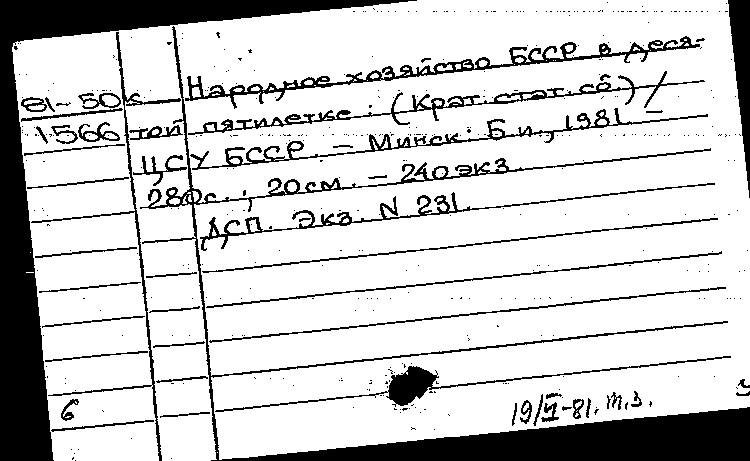 81-50к Народное хозяйство БССР в деся-
1566 той пятилетке: (Крат. стат. сб.) /
ЦСУ БССР. – Минск: Б.и., 1981 –
280с.; 20см. – 240экз.
ДСП. Экз. N 231.
6
19/VI-81. т.з.